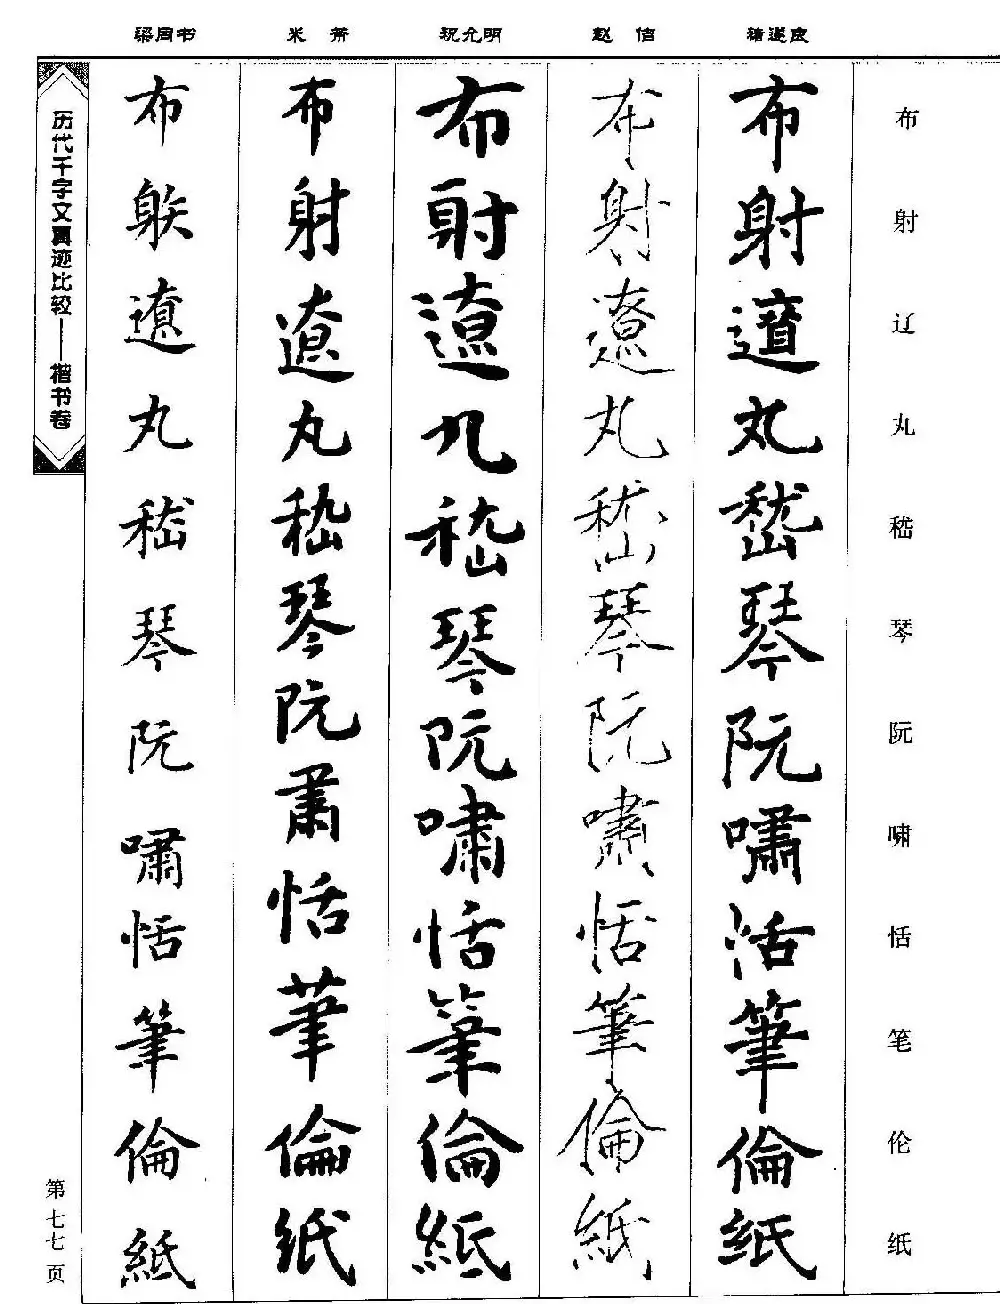 布射辽丸嵇琴阮啸恬笔伦纸
褚遂良
布射遼丸嵇琴阮嘯活筆倫紙
赵佶
布射遼丸嵇琴阮嘯恬筆倫紙
祝允明
布射遼丸嵇琴阮嘯恬筆倫紙
米芾
布射遼丸嵇琴阮肅恬筆倫紙
梁同书
布䠶遼丸嵇琴阮嘯恬筆倫紙
历代千字文真迹比较——楷书卷
第七七页